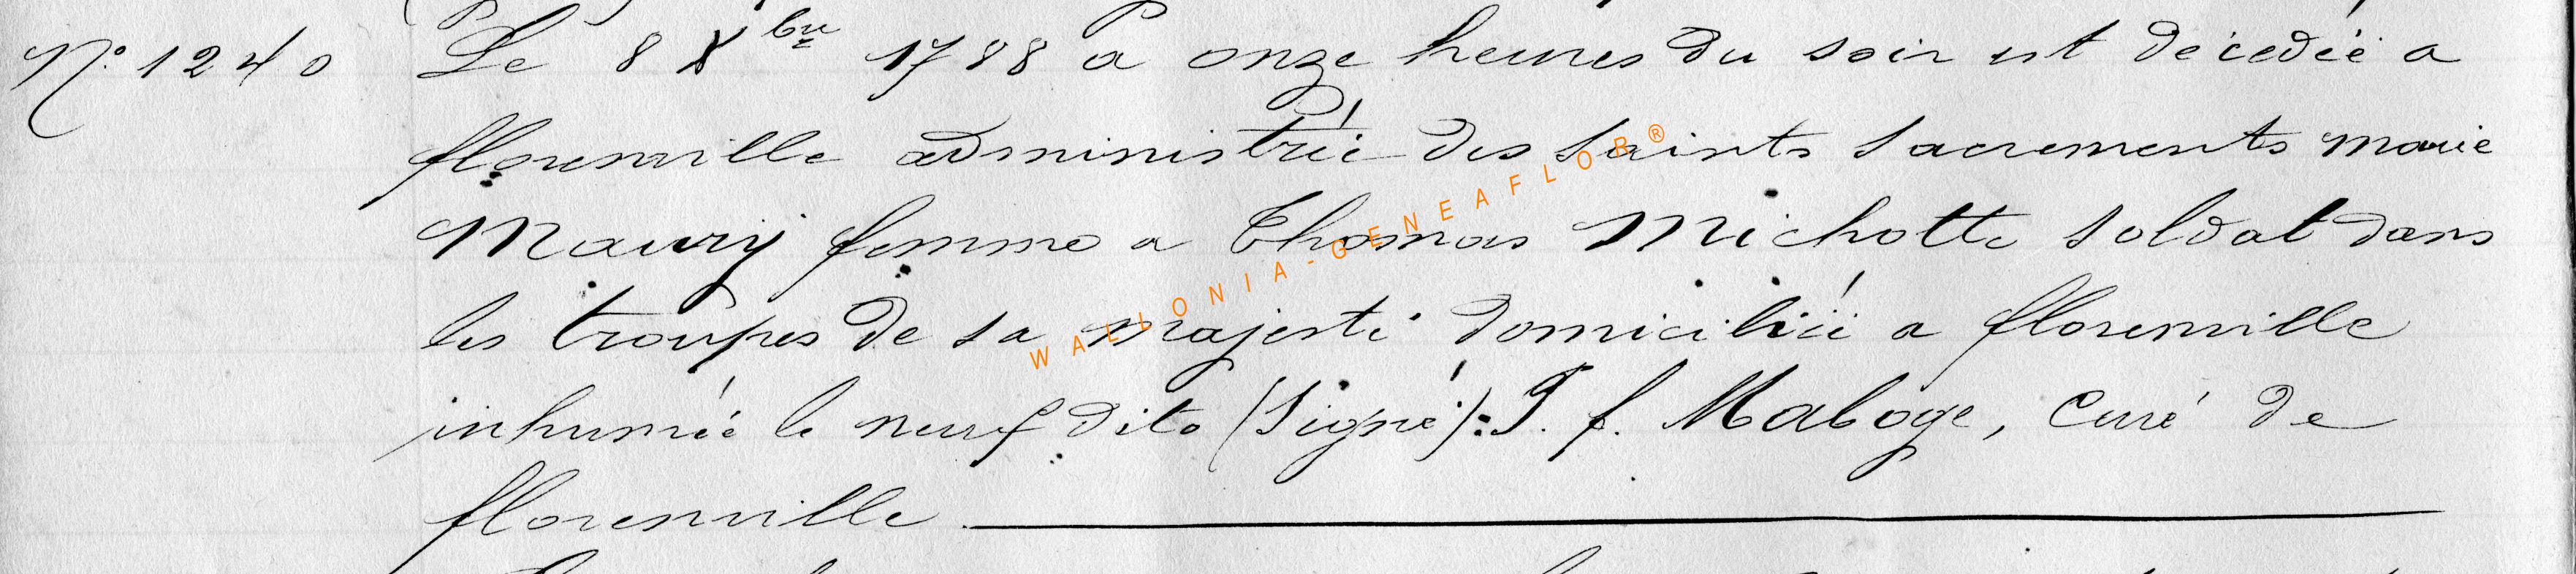 N° 1240 Le 8 Xbre 1788 a onze heures du soir est décedée a
florenville administrée des saints sacrements marie
Maury femme a Thomas Michotte soldat dans
les troupes de sa majesté domiciliée a florenville
inhumée le neuf dito (Signé): J. f. Maboge, Curé de
florenville
WALLONIA-GENEAFLOR®